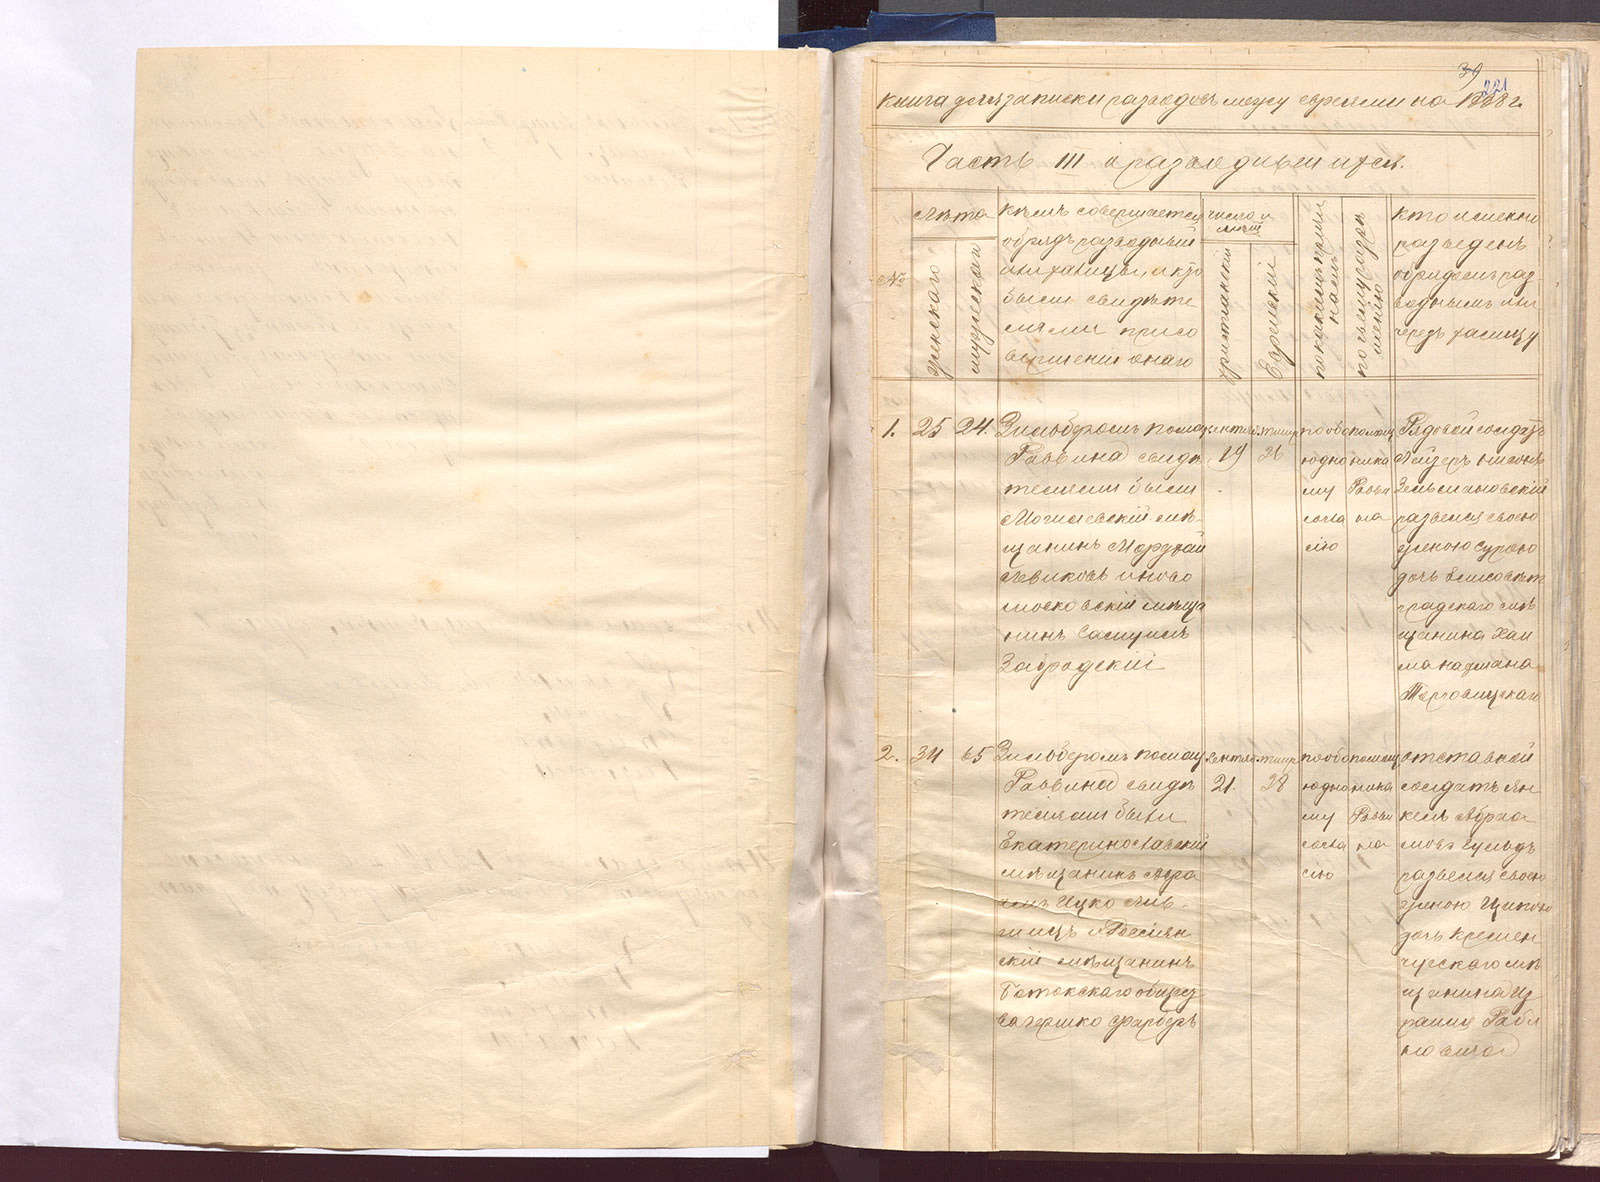 39
221
Книга для записки разводовъ между евреями на 1888 г.
Часть III о разводившихся.
№
лѣта
женскаго
мужескаго
кѣмъ совершается
обрядъ разводный
или халицы, и кто
были свидѣте
лями при со
вершеніи онаго
число и
мѣсяц
христіанскій
Еврейскій
по какимъ причи
намъ
по чьему разрѣ
шенію
кто именно
разведенъ
обрядомъ раз
воднымъ или
чрезъ халицу
1.
25
24.
Зильберомъ помощ
Раввина свидѣ
телями были
Могилевскій мѣ-
щанинъ Мордхай
Левиковъ и ново
московскій мѣща
нинъ Самуилъ
Заградскій
сентяб
19
тишр
26
по обо
юдно
му
согла
сію
помощ
ника
Равви
на
Рядовой солдатъ
Лейзеръ
развелся своею
женою Сурою
дочь Елисовет
градскаго мѣ
щанина Хаи
ма
2.
34
65
Зильберомъ помощ
Раввина свидѣ
телями были
Екатеринославскій
мѣщанинъ Абра
амъ Ицко Лив-
шицъ и Россіян
скій мѣщанинъ
Ботокскаго общес
ва Гершко Фарберъ
сентяб
21.
тишр
28
по обо
юдно
му
согла
сію
помощ
ника
Равви
на
отставной
солдатъ Ян
кель Абра
мовъ
развелся своею
женою Ципою
дочь Кремен
чугскаго мѣ
щанина Из
раиля Раби
новича